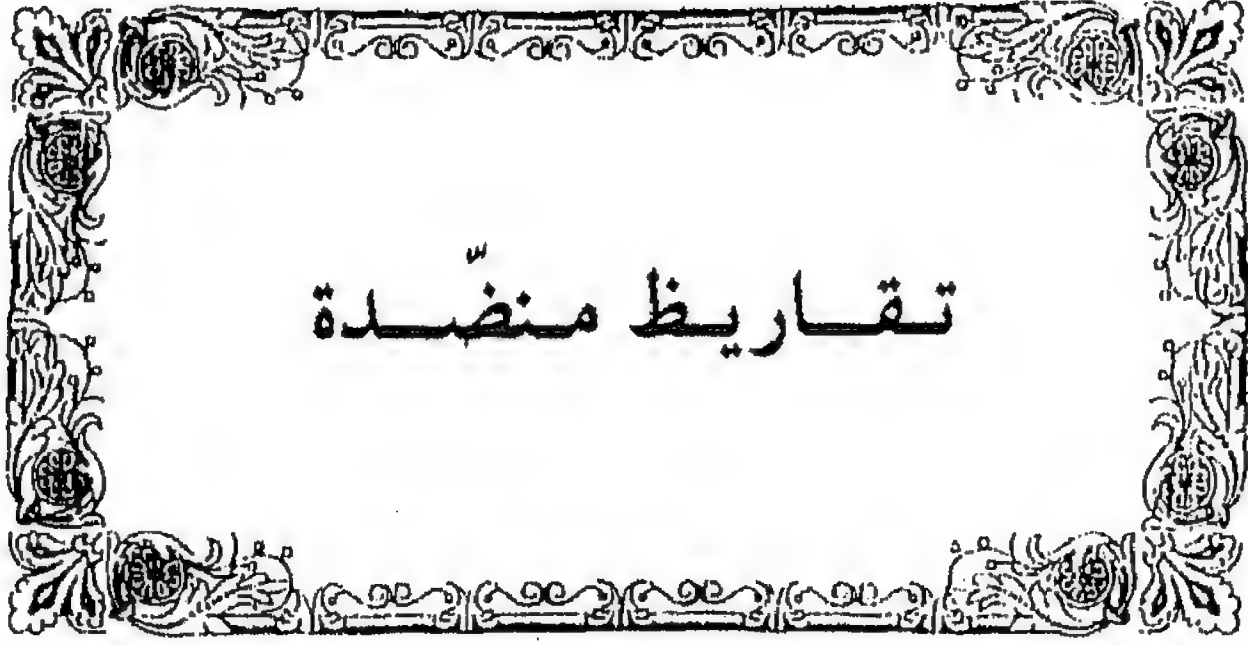 تقاريظ منضّدة